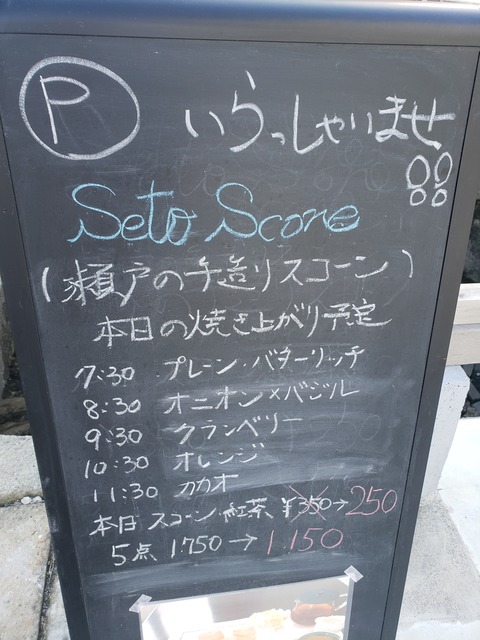 P
いらっしゃいませ!!
Seto Scone
(瀬戸の手造りスコーン)
本日の焼き上がり予定
7:30 プレーン・バターリッチ
8:30 オニオン×バジル
9:30 クランベリー
10:30 オレンジ
11:30 カカオ
本日 スコーン・紅茶 ¥350→250
5点 1750→1150